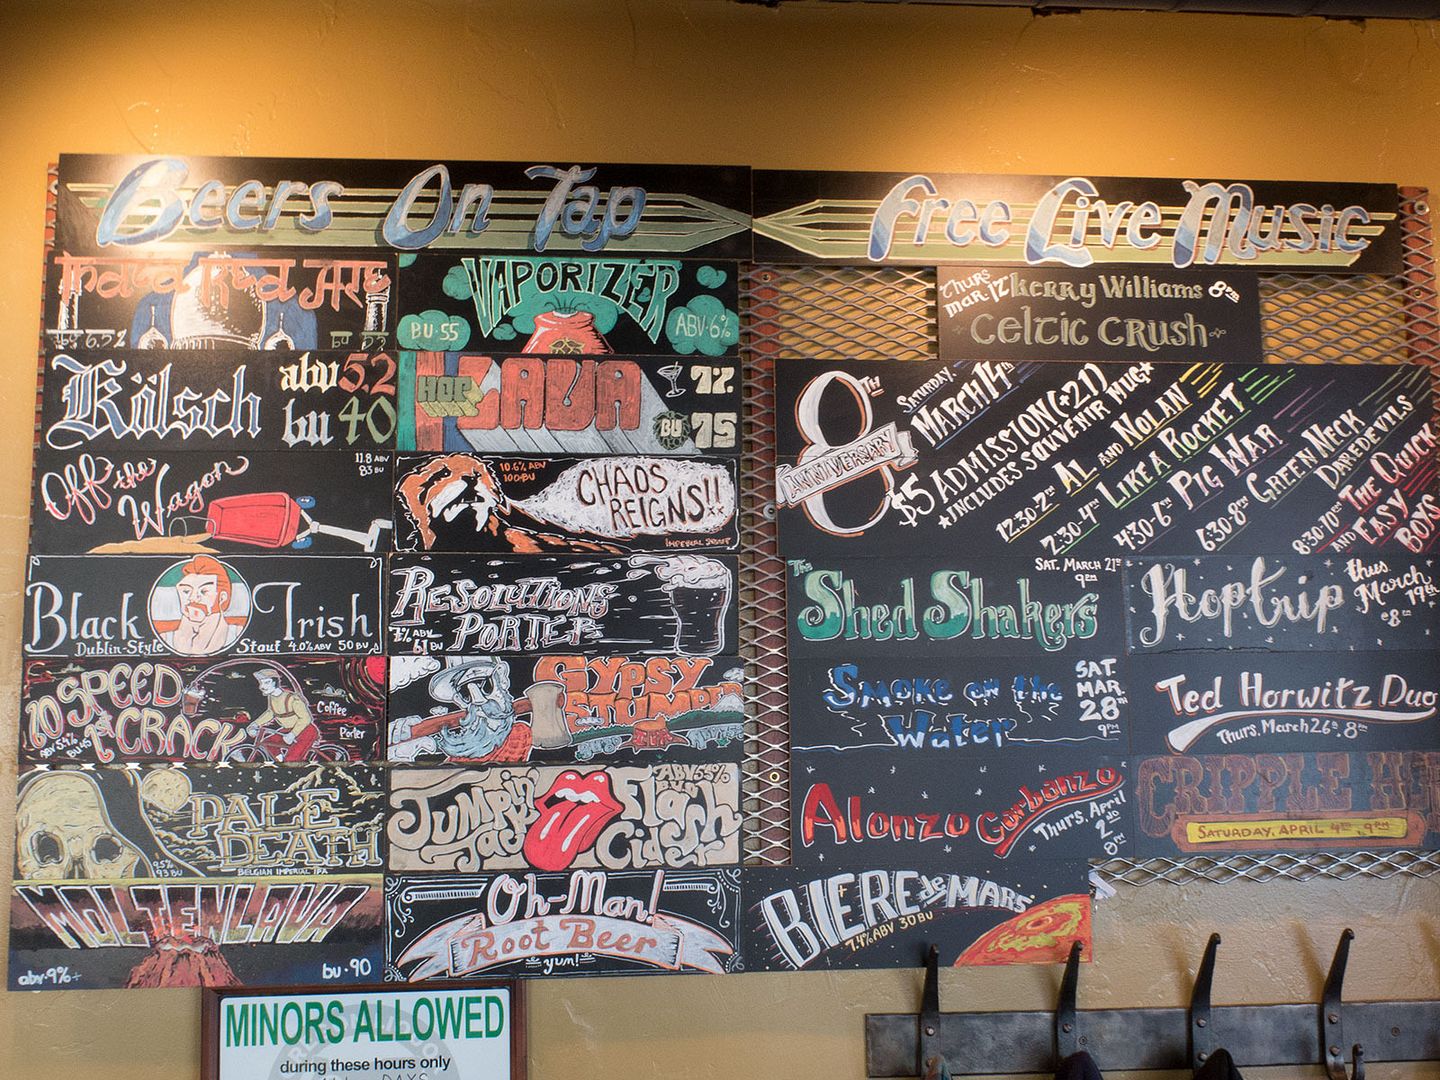 Beers On Tap
India Red Ale
Kölsch
abv 5.2
bu 40
Off the Wagon
11.8 ABV
83 BU
Black Irish
Dublin-Style Stout 4.0% ABV 50 BU
10 SPEED
1st CRACK
Coffee
Porter
PALE DEATH
9.5%
93 BU
BELGIAN IMPERIAL IPA
MOLTEN LAVA
abv·9%+
bu·90
VAPORIZER
BU·55
ABV·6%
HOP LAVA
7%
BU 75
10.6% ABV
100·BU
CHAOS REIGNS!!
RESOLUTIONS
PORTER
GYPSY
STUMPER
IRA
Jumpin Jack
Flash Cider
Oh-Man!
Root Beer
yum!
BIERE de MARS
7.4% ABV 30 BU
Free Live Music
THURS
MAR. 12 Kerry Williams 8PM
Celtic Crush
8TH
ANNIVERSARY
SATURDAY,
MARCH 14TH
$5 ADMISSION (+21)
*INCLUDES SOUVENIR MUG*
12:30-2 AL AND NOLAN
2:30-4 LIKE A ROCKET
4:30-6 PIG WAR
6:30-8 GREEN NECK DAREDEVILS
8:30-10 THE QUICK AND EASY BOYS
The Shed Shakers
SAT. MARCH 21st
9PM
HopTrip
thus.
March
19th
@8
Smoke on the Water
SAT.
MAR.
28th
9PM
Ted Horwitz Duo
Thurs, March 26th, 8PM
Alonzo Garbanzo
Thurs, April 2nd
8PM
CRIPPLE
SATURDAY, APRIL 4TH, 9PM
MINORS ALLOWED
during these hours only